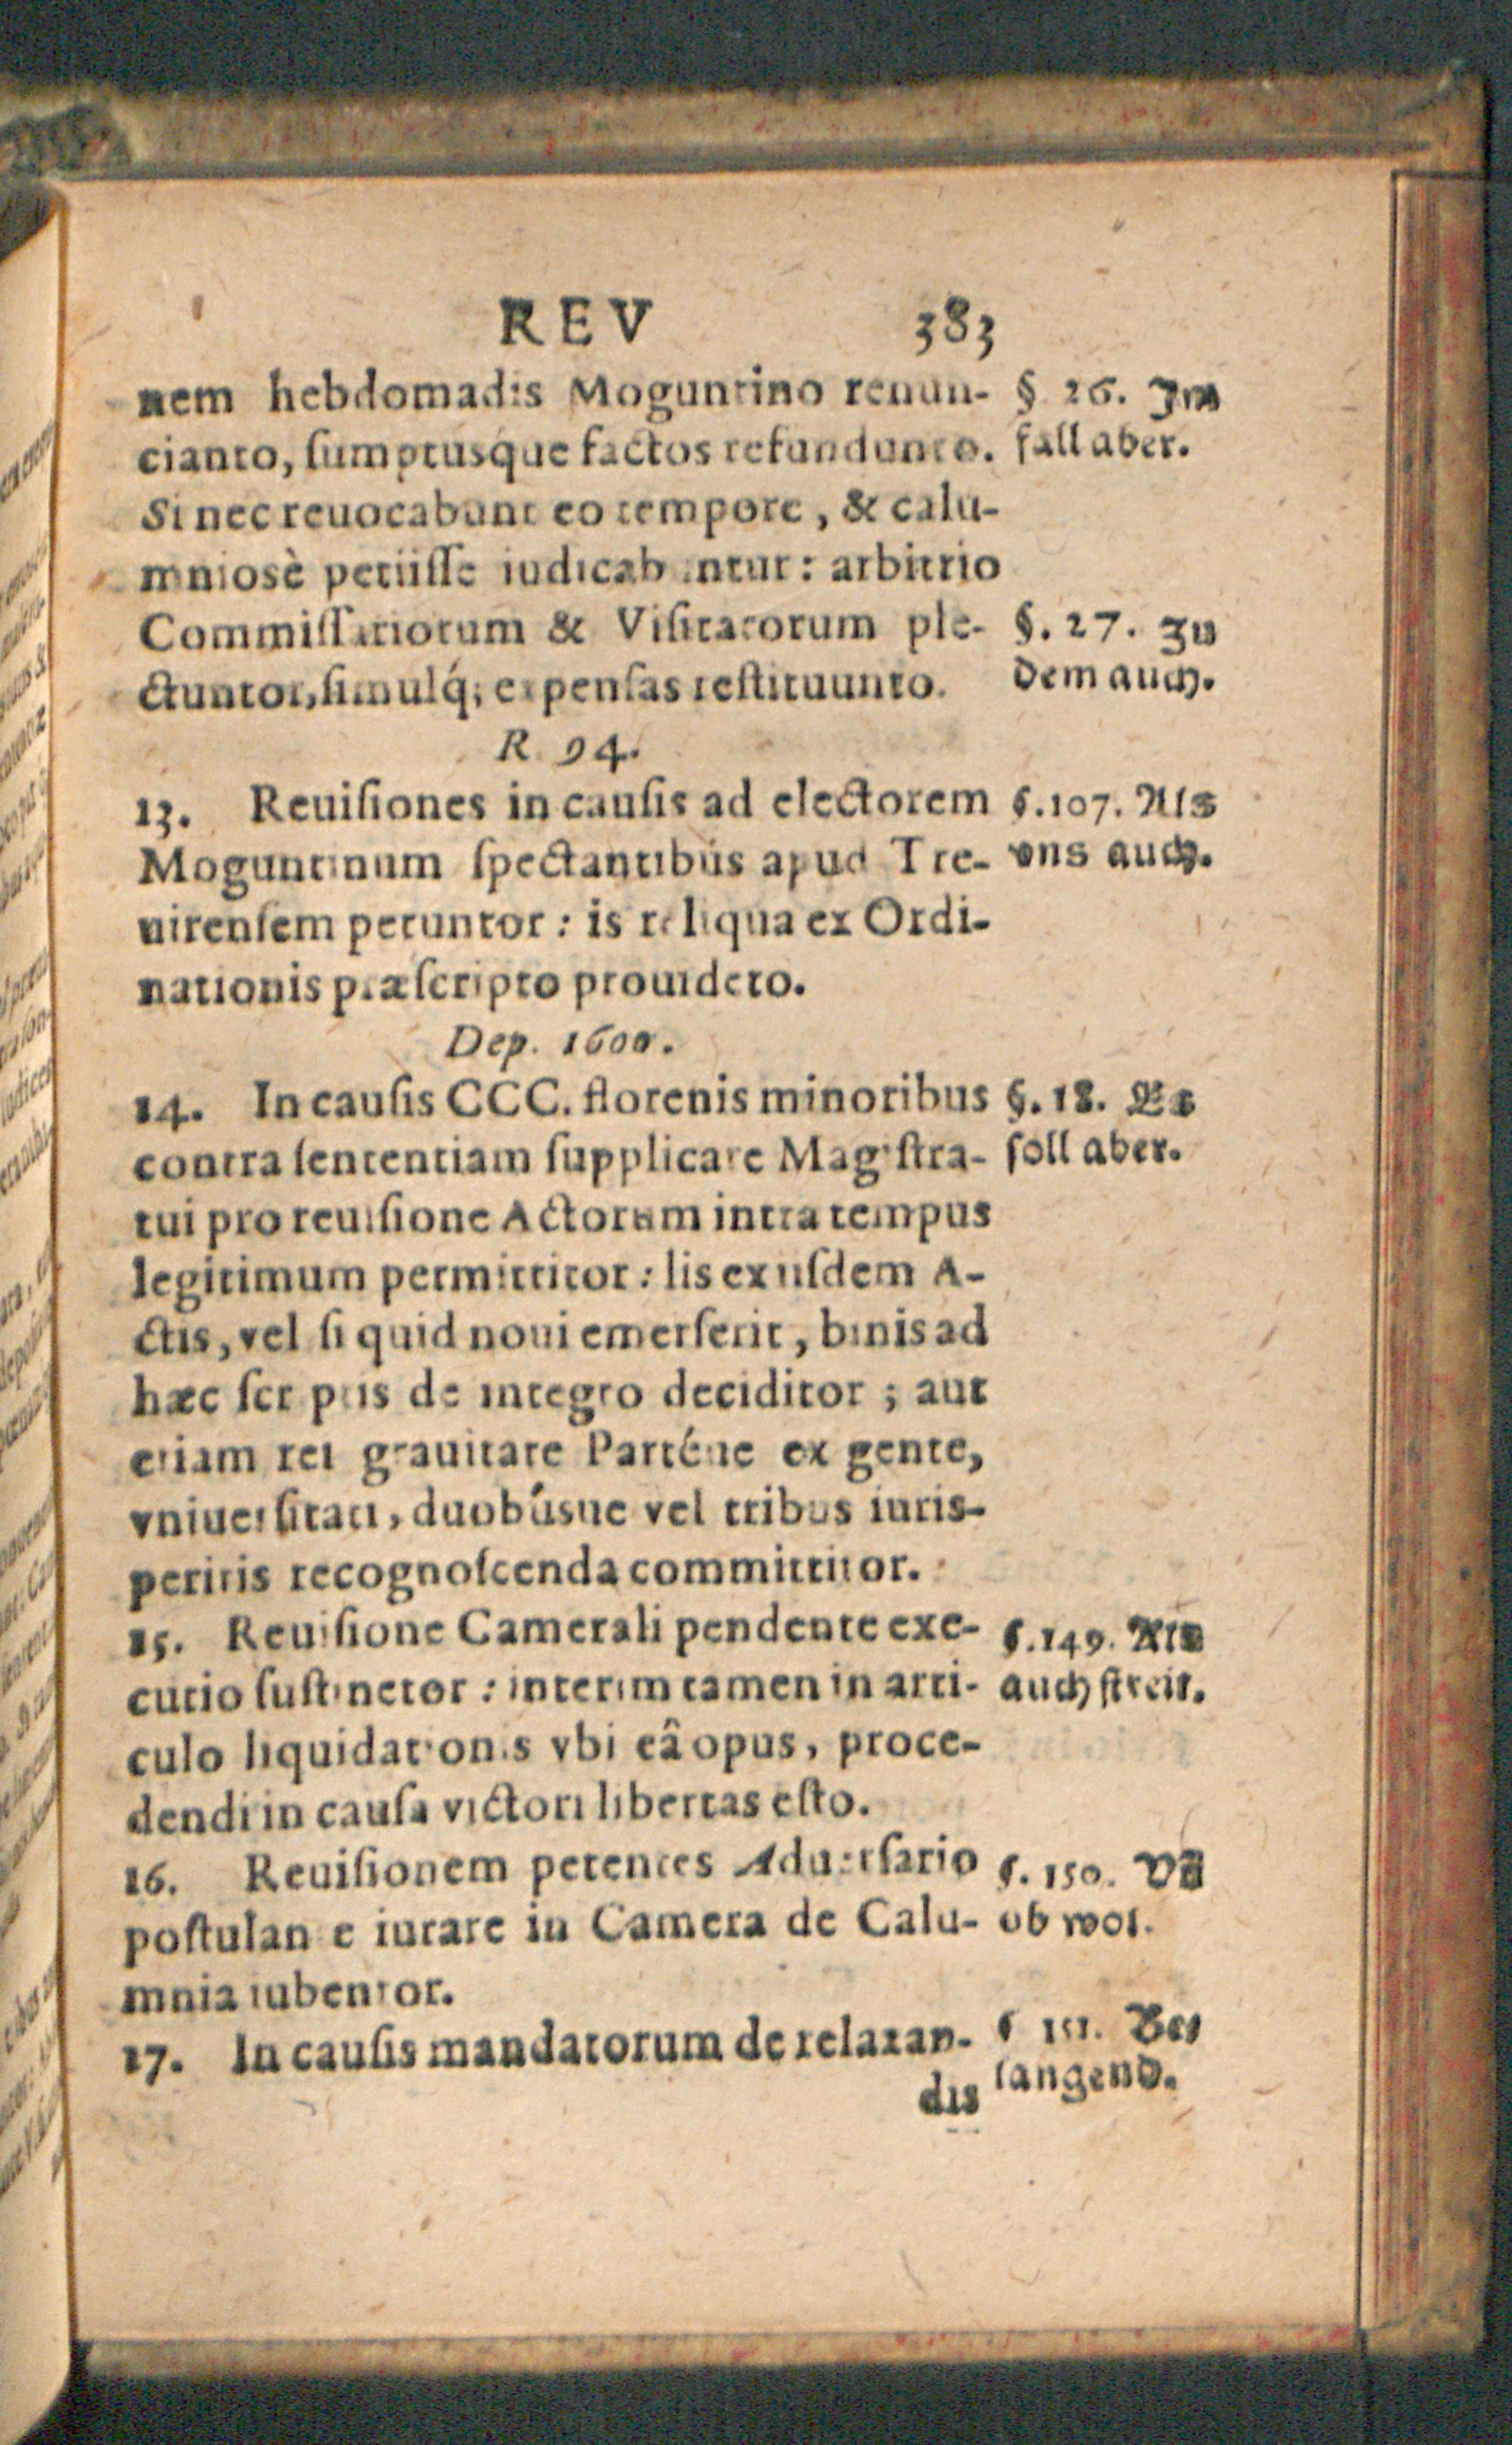 REV 383
nem hebdomadis Moguntino renun-
cianto, ſumptusque factos refundunto.
Si nec reuocabunt eo tempore, & calu-
mniosè petiiſſe iudicabuntur: arbitrio
Commiſſariorum & Viſitatorum ple-
ctuntor, ſimulq́; expenſas reſtituunto.
§ 26. Im
fall aber.
§. 27. Zu
dem auch.
R 94.
13. Reuiſiones in cauſis ad electorem
Moguntinum ſpectantibus apud Tre-
uirenſem petuntor: is reliqua ex Ordi-
nationis præſcripto prouideto.
§. 107. Als
vns auch.
Dep. 1600.
14. In cauſis CCC. florenis minoribus
contra ſententiam ſupplicare Magiſtra-
tui pro reuiſione Actorum intra tempus
legitimum permittitor: lis ex iiſdem A-
ctis, vel ſi quid noui emerſerit, binis ad
hæc ſcriptis de integro deciditor; aut
etiam rei grauitate Partéue ex gente,
vniuerſitati, duobúsue vel tribus iuris-
peritis recognoſcenda committitor.
§. 18. Es
ſoll aber.
15. Reuiſione Camerali pendente exe-
cutio ſuſtinetor: interim tamen in arti-
culo liquidationis vbi eâ opus, proce-
dendi in cauſa victori libertas eſto.
§. 149. Als
auch ſtreit.
16. Reuiſionem petentes Aduerſario
poſtulante iurare in Camera de Calu-
mnia iubentor.
§. 150. Vñ
ob wol.
17. In cauſis mandatorum de relaxan-
dis
§ 151. Be⸗
langend.